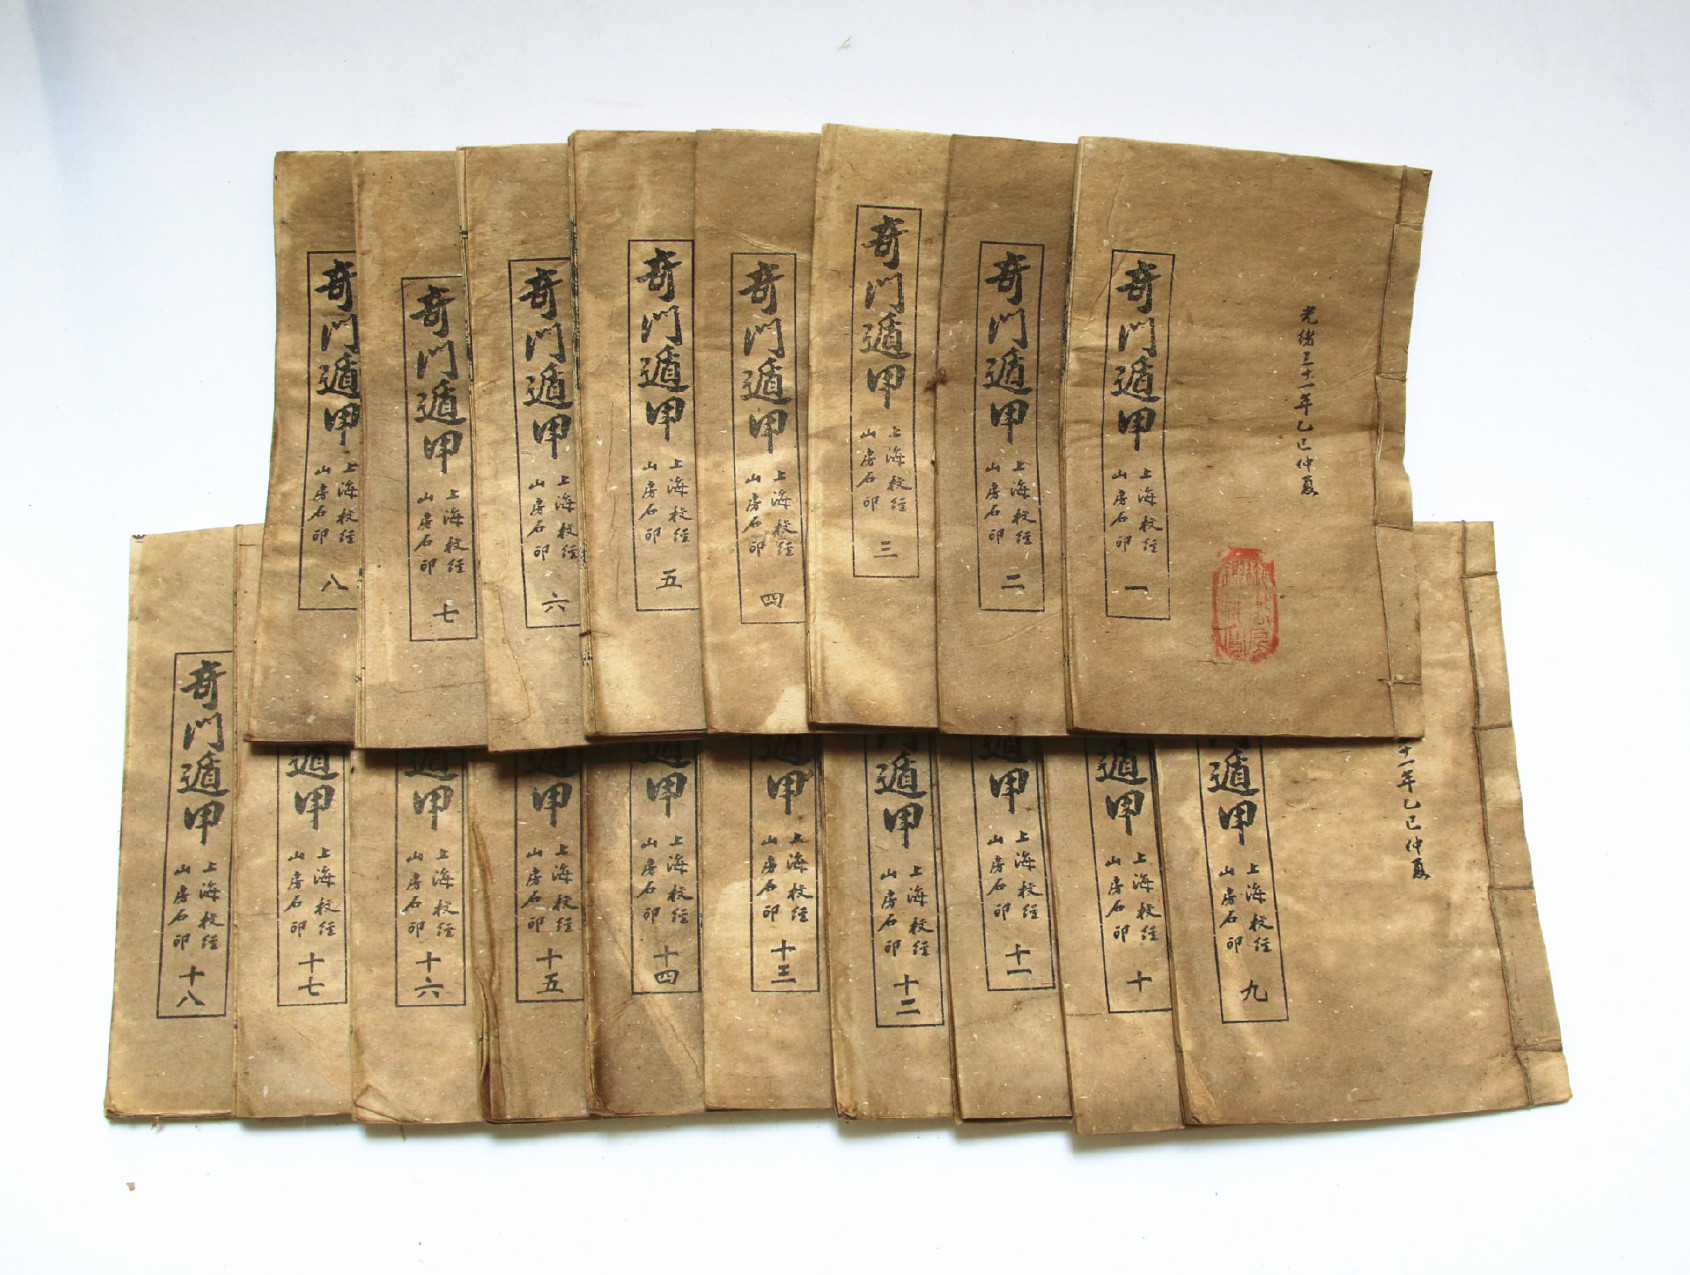 光绪三十一年乙巳仲夏
奇門遁甲
上海校经
山房石印
一
奇門遁甲
上海校经
山房石印
二
奇門遁甲
上海校经
山房石印
三
奇門遁甲
上海校经
山房石印
四
奇門遁甲
上海校经
山房石印
五
奇門遁甲
上海校经
山房石印
六
奇門遁甲
上海校经
山房石印
七
奇門遁甲
上海校经
山房石印
八
十一年乙巳仲夏
門遁甲
上海校经
山房石印
九
遁甲
上海校经
山房石印
十
遁甲
上海校经
山房石印
十一
門遁甲
上海校经
山房石印
十二
遁甲
上海校经
山房石印
十三
遁甲
上海校经
山房石印
十四
遁甲
上海校经
山房石印
十五
遁甲
上海校经
山房石印
十六
遁甲
上海校经
山房石印
十七
奇門遁甲
上海校经
山房石印
十八